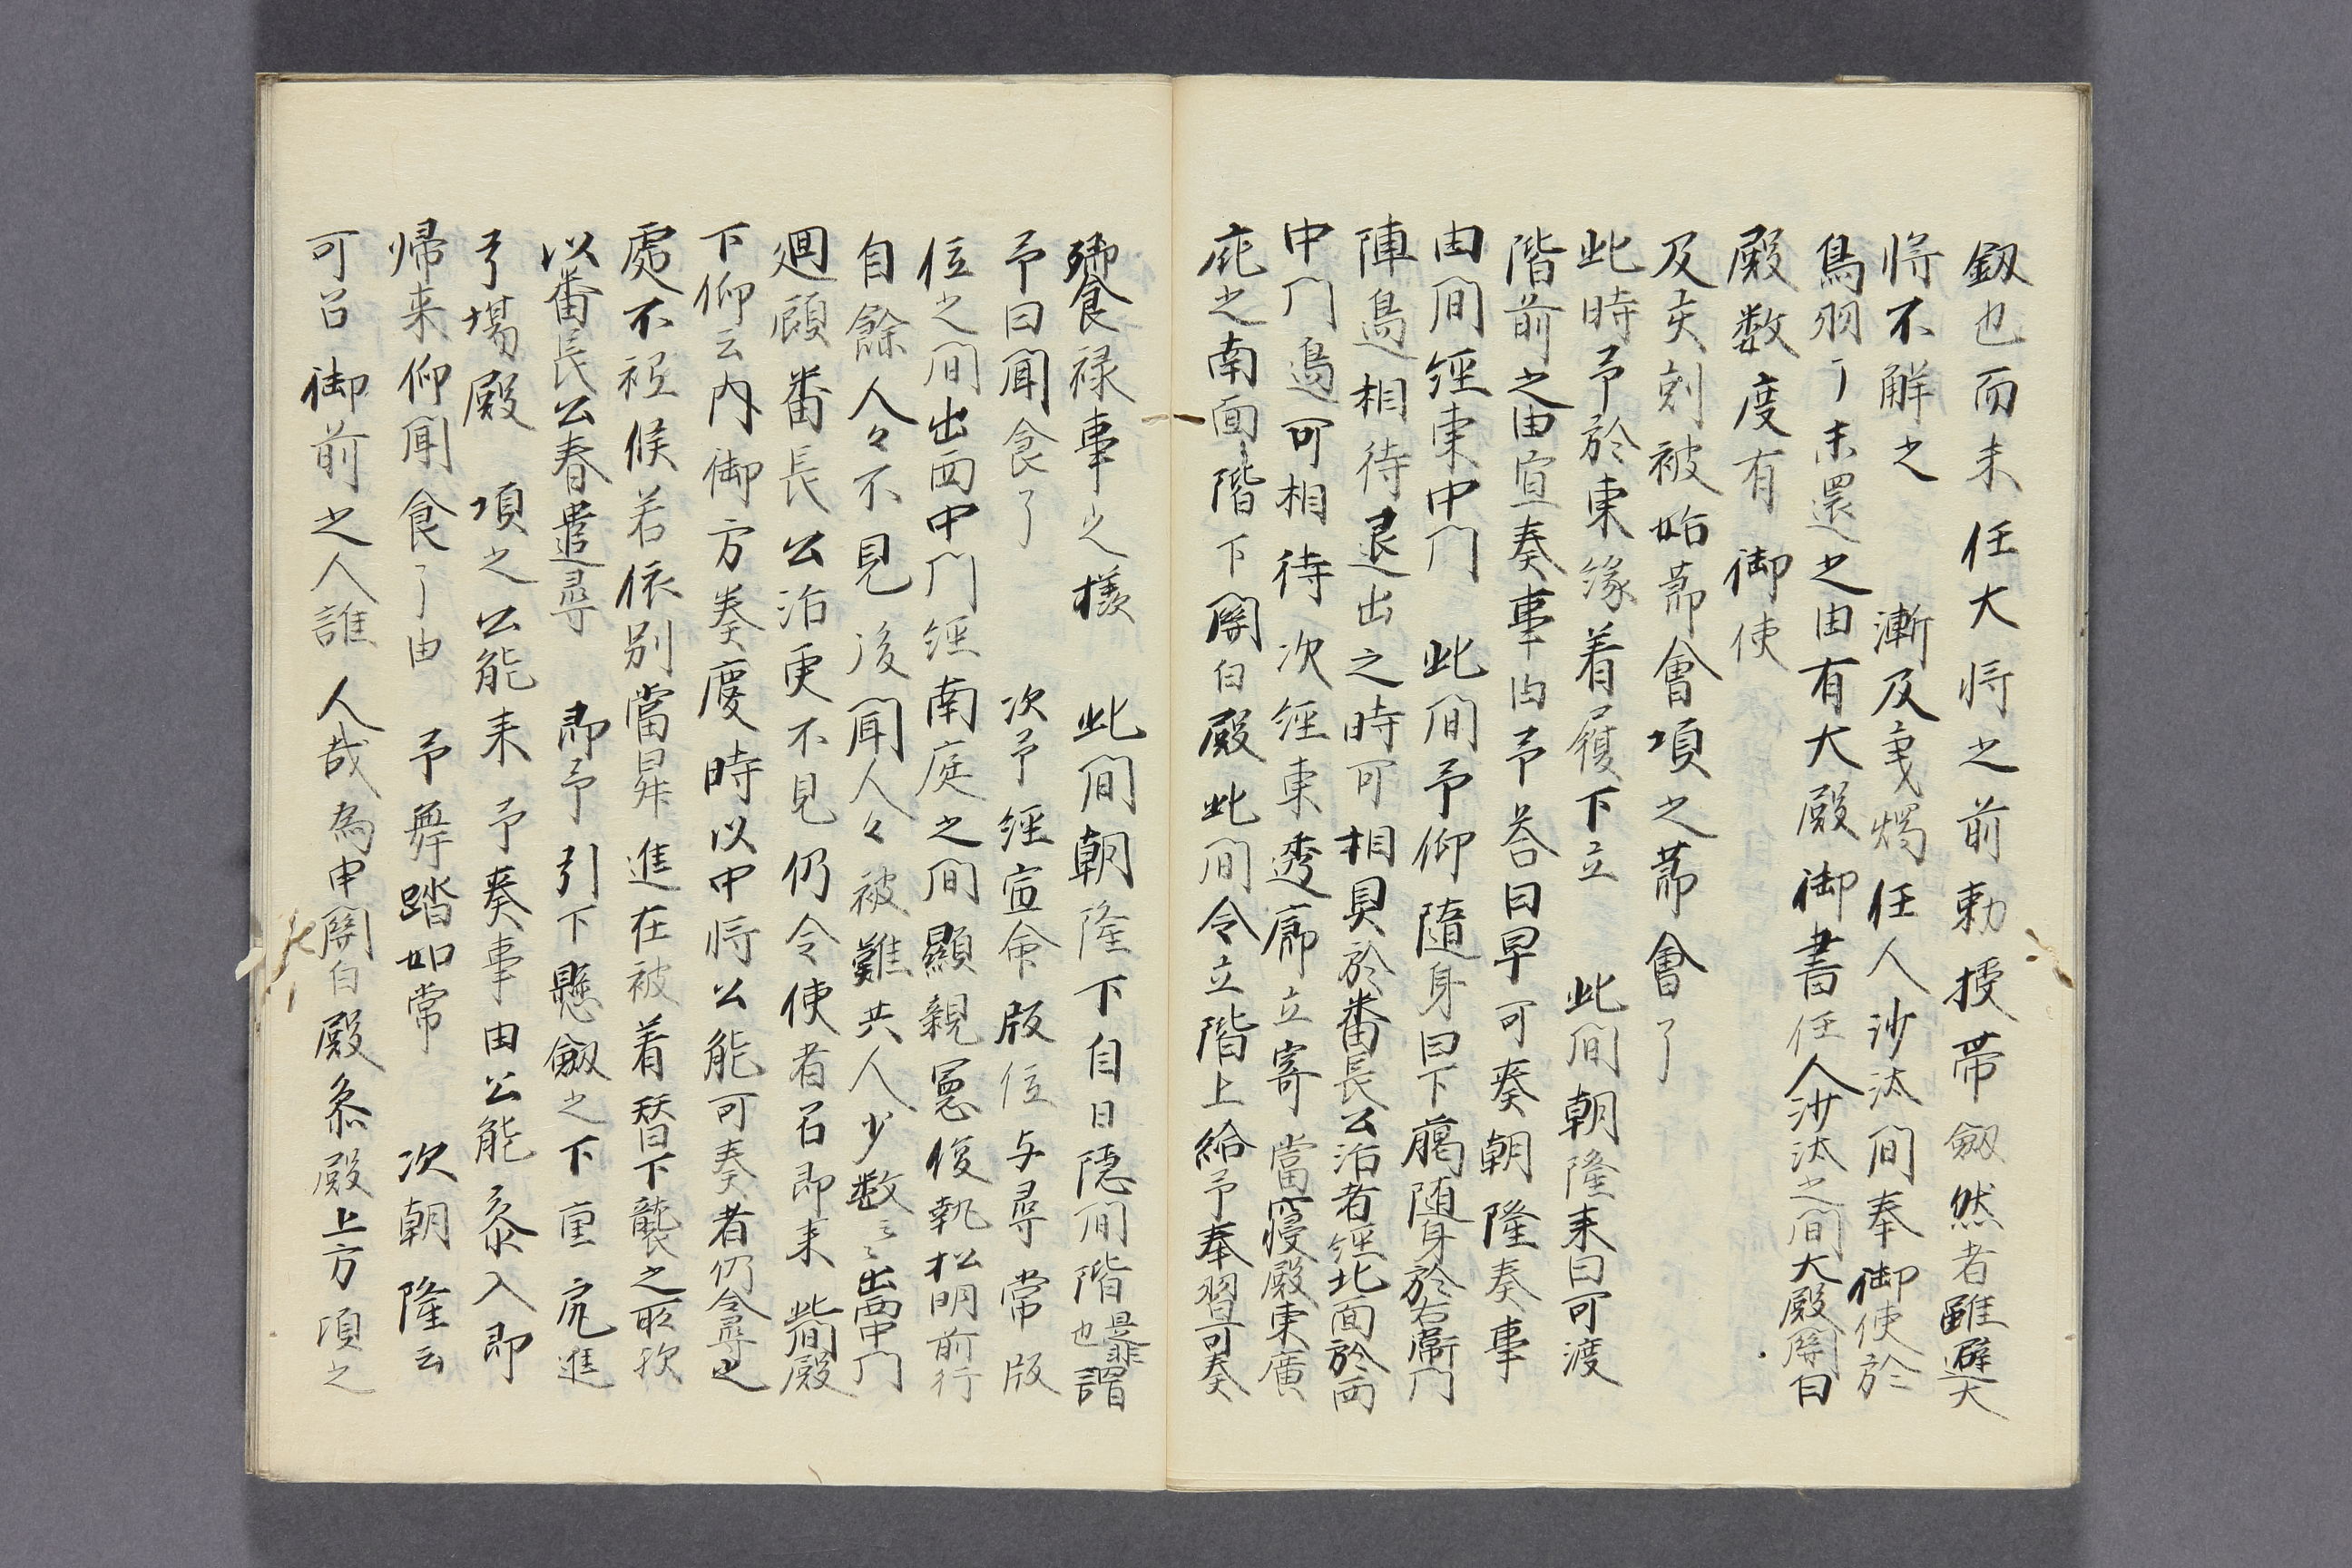 釼也而未任大将之前勅授帯劔然者雖避大
将不解之　漸及秉燭任人沙汰間奉御使於
鳥羽了未還之由有大殿御書任人沙汰之間大殿関白
殿数度有御使
及亥剋被始莭會頃之莭會了
此時予於東縁着履下立　此間朝隆来曰可渡
階前之由宣奏事由予荅曰早可奏朝隆奏事
由間經東中門　此間予仰随身曰下臈随身於右衛門
陣邉相待退出之時可相具於番長公治者經北面於西
中門邉可相待次經東透廊立寄當寝殿東廣
庇之南面階下関白殿此間令立階上給予奉習可奏
聞食禄事之様　此間朝隆下自日隠間階是非謂也
予曰聞食了　次予經宣命版位与尋常版
位之間出西中門經南庭之間顯親憲俊執松明前行
自餘人々不見後聞人々被難共人少数云々出西中門
廻顧番長公治更不見仍令使者召即来　此間殿
下仰云内御方奏慶時以中将公能可奏者仍令尋之
處不祗候若依別當昇進在被着替下襲之所欤
以番長公春遣尋　即予引下懸劔之下重尻進
弓場殿　頃之公能来予奏事由公能参入即
帰来仰聞食了由　予舞踏如常　次朝隆云
可召御前之人誰人哉為申関白殿参殿上方頃之